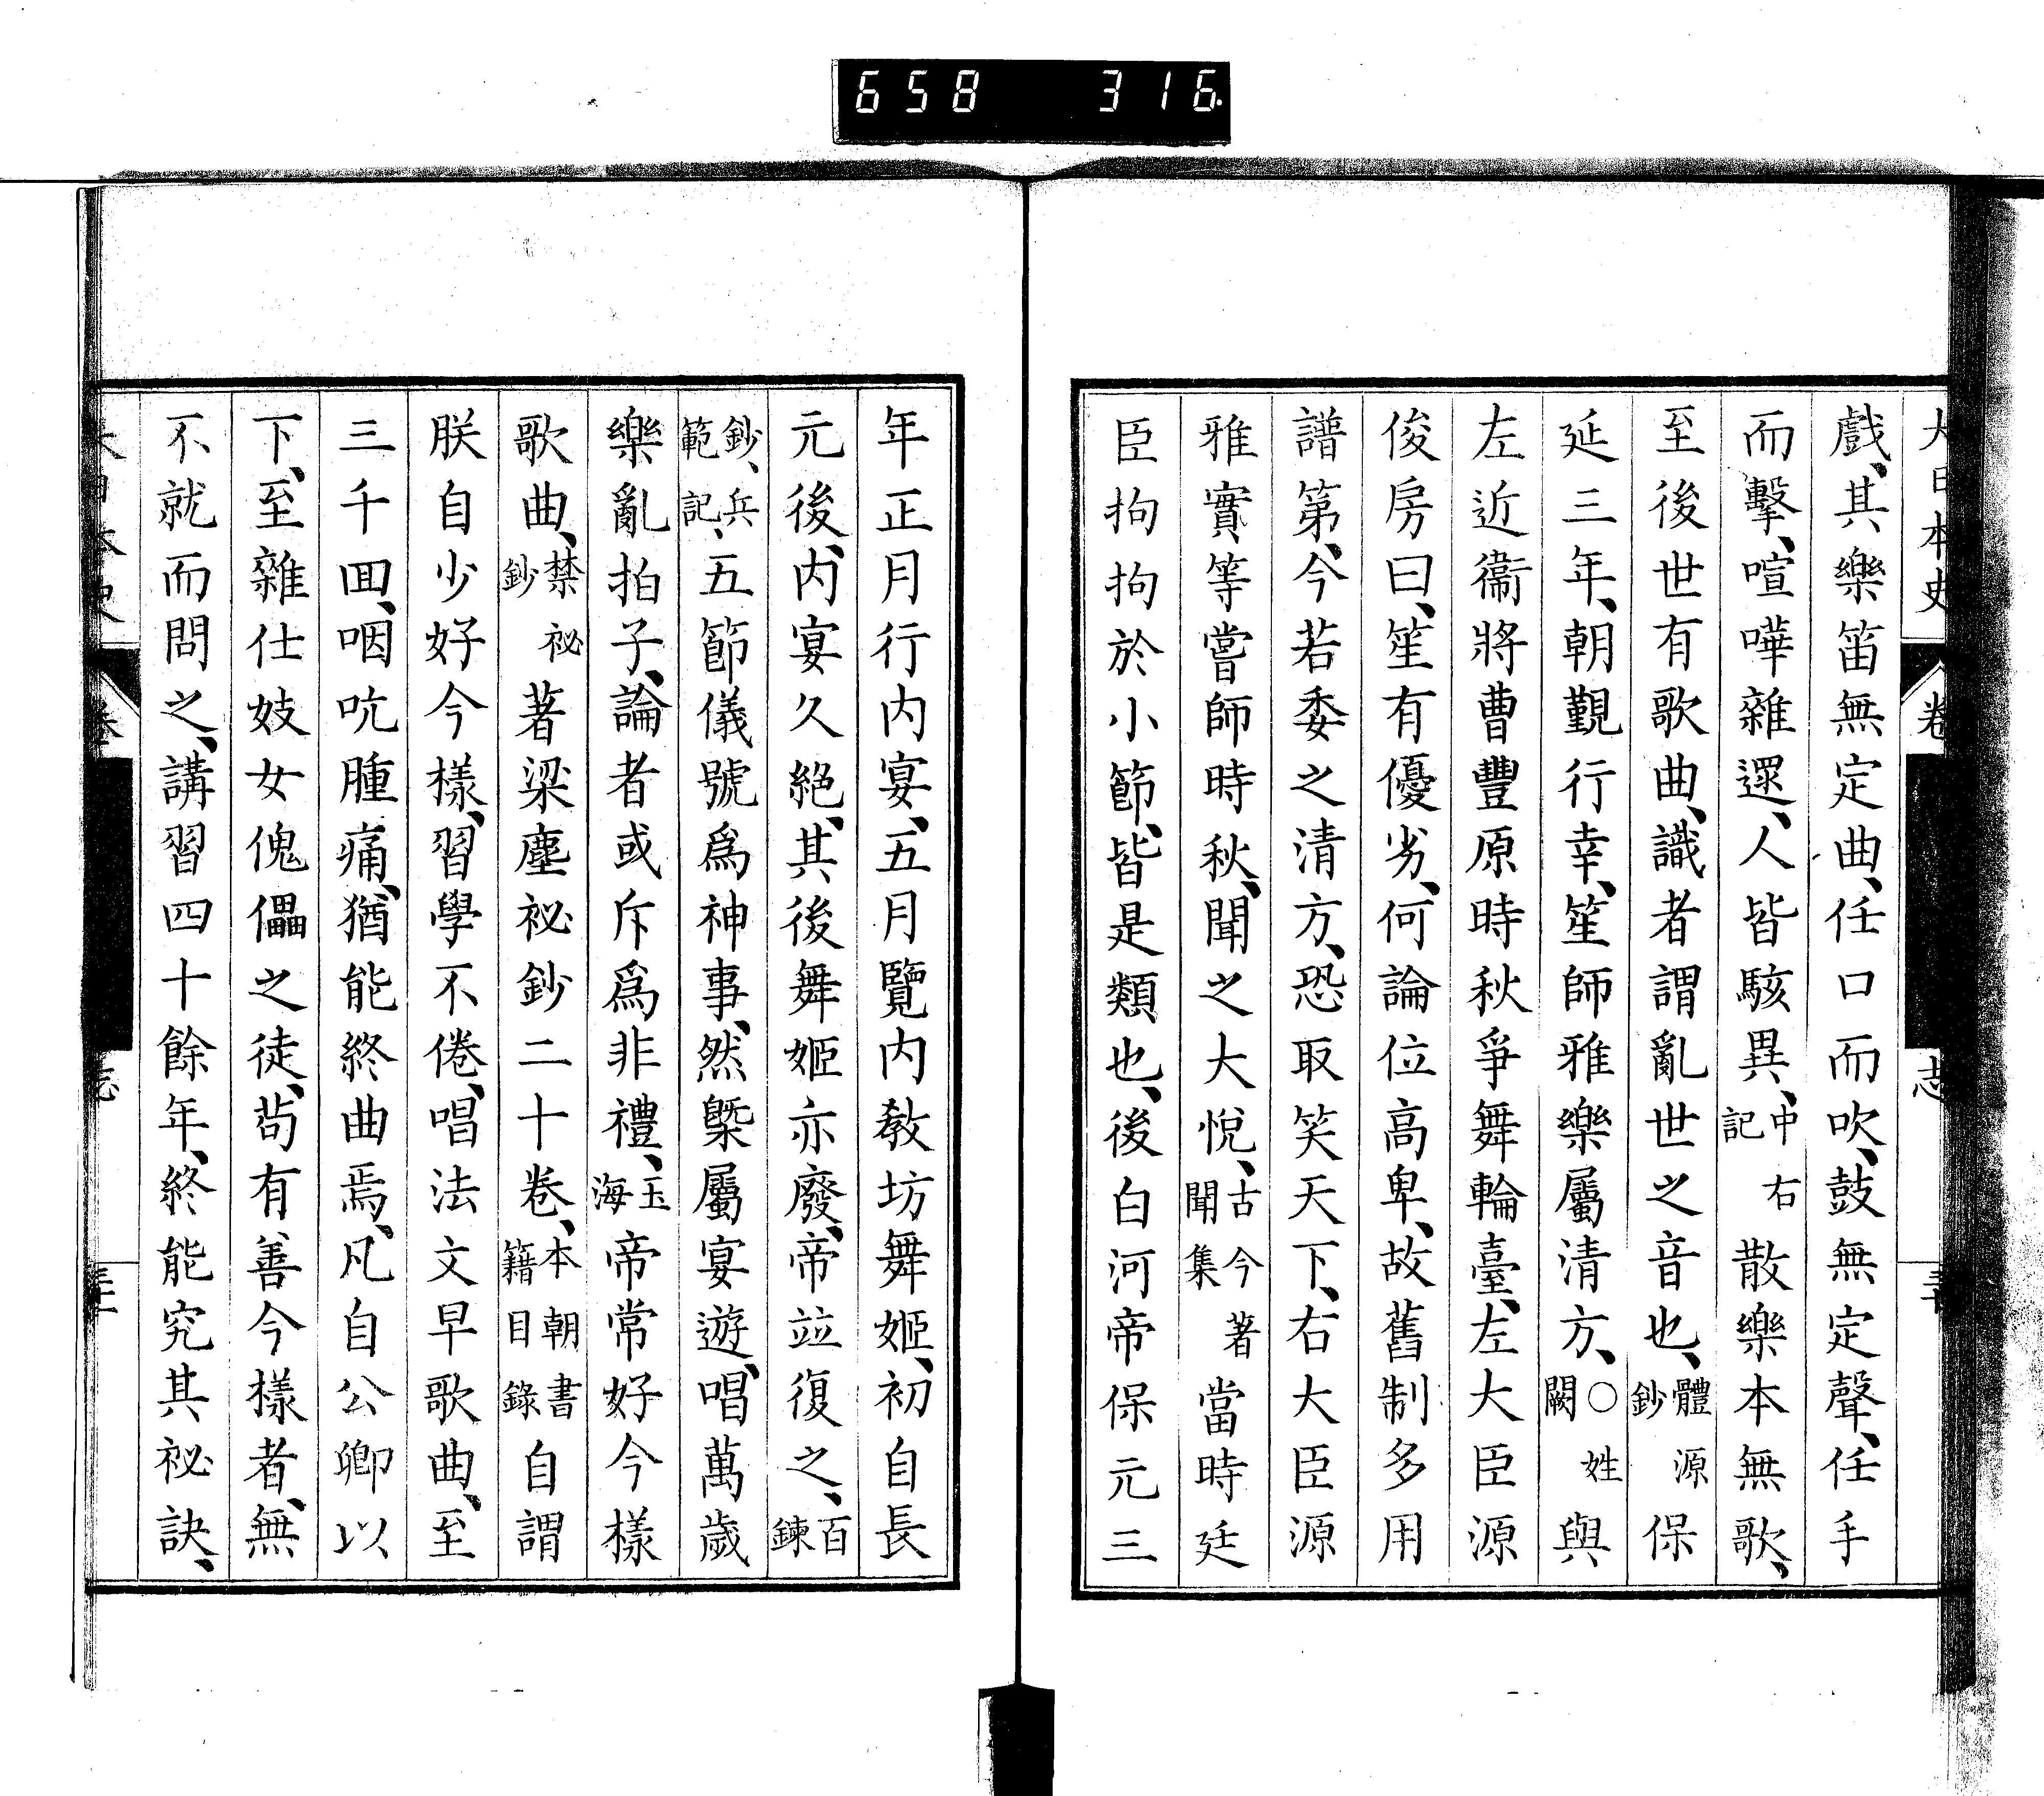 658 316
大日本史 卷 志
戲、其樂笛無定曲、任口而吹、鼓無定聲、任手
而擊、喧嘩雜還、人皆駭異、中右記散樂本無歌、
至後世有歌曲、識者謂亂世之音也、體源鈔保
延三年、朝覲行幸、笙師雅樂屬清方、○姓闕與
左近衞將曹豐原時秋爭舞輪臺、左大臣源
俊房曰、笙有優劣、何論位高卑、故舊制多用
譜第、今若委之清方、恐取笑天下、右大臣源
雅實等嘗師時秋、聞之大悅、古今著聞集當時廷
臣拘拘於小節、皆是類也、後白河帝保元三
年正月行内宴、五月覽内教坊舞姬、初自長
元後、内宴久絕、其後舞姬亦廢、帝竝復之、百鍊
鈔、兵範記、五節儀號爲神事、然槩屬宴遊、唱萬歲
樂亂拍子、論者或斥爲非禮、玉海帝常好今樣
歌曲、禁祕鈔著梁塵祕鈔二十卷、本朝書籍目錄自謂
朕自少好今樣、習學不倦、唱法文早歌曲、至
三千回、咽吭腫痛、猶能終曲焉、凡自公卿以
下、至雜仕妓女傀儡之徒、苟有善今樣者、無
不就而問之、講習四十餘年、終能究其祕訣、